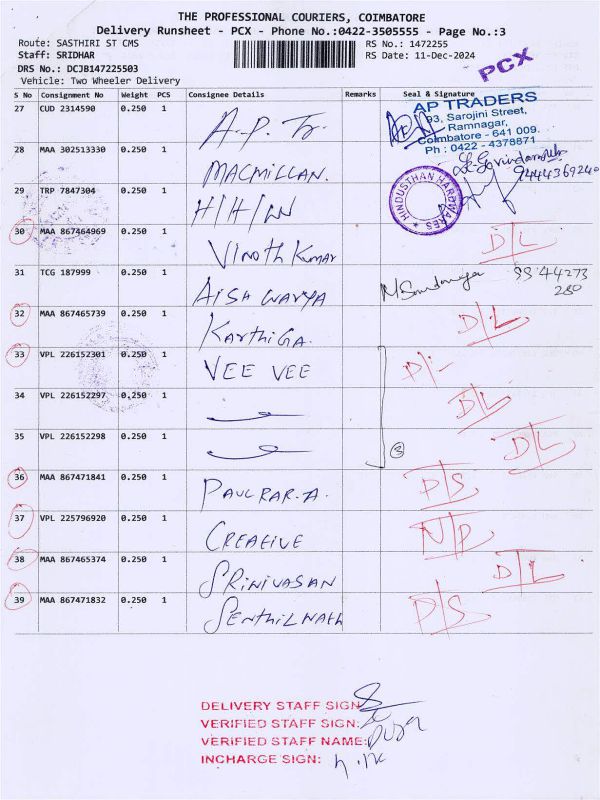 THE PROFESSIONAL COURIERS, COIMBATORE
Delivery Runsheet - PCX - Phone No.:0422-3505555 - Page No.:3
Route: SASTHIRI ST CMS RS No.: 1472255
Staff: SRIDHAR RS Date: 11-Dec-2024
DRS No.: DCJB147225503
Vehicle: Two Wheeler Delivery
PCX
S No Consignment No Weight PCS Consignee Details Remarks Seal & Signature
27 CUD 2314590 0.250 1 A.P. Tr.
AP TRADERS
93, Sarojini Street,
Ramnagar,
Coimbatore - 641 009.
Ph : 0422 - 4378871
28 MAA 302513330 0.250 1 MACMILLAN.
9444369240
29 TRP 7847304 0.250 1 H/H/W
HINDUSTHAN HARDWARES
30 MAA 867464969 0.250 1 Vinoth Kumar D/L
31 TCG 187999 0.250 1 AISHWARYA 99 44273
280
32 MAA 867465739 0.250 1 KarthiGA. D/L
33 VPL 226152301 0.250 1 VEE VEE D/-
34 VPL 226152297 0.250 1 D/L
35 VPL 226152298 0.250 1 3 D/L
36 MAA 867471841 0.250 1 PAULRAR.A. D/S
37 VPL 225796920 0.250 1 CREATIVE N/P
38 MAA 867465374 0.250 1 SRINIVASAN D/L
39 MAA 867471832 0.250 1 SENTHILNATH D/S
DELIVERY STAFF SIGN:
VERIFIED STAFF SIGN:
VERIFIED STAFF NAME:
INCHARGE SIGN: